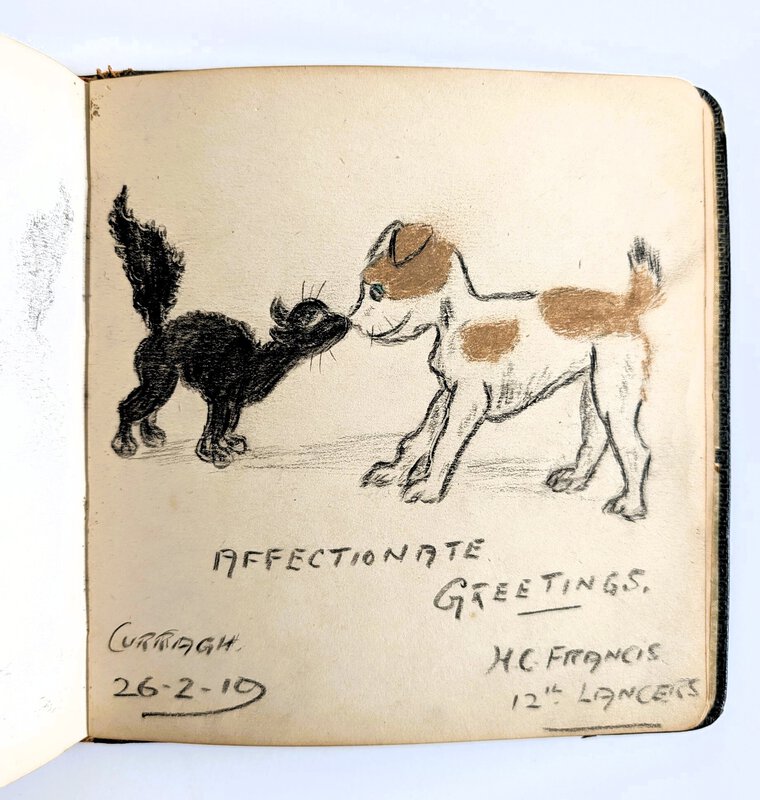 AFFECTIONATE
GREETINGS.
CURRAGH.
26-2-19
H.C. FRANCIS
12th LANCERS